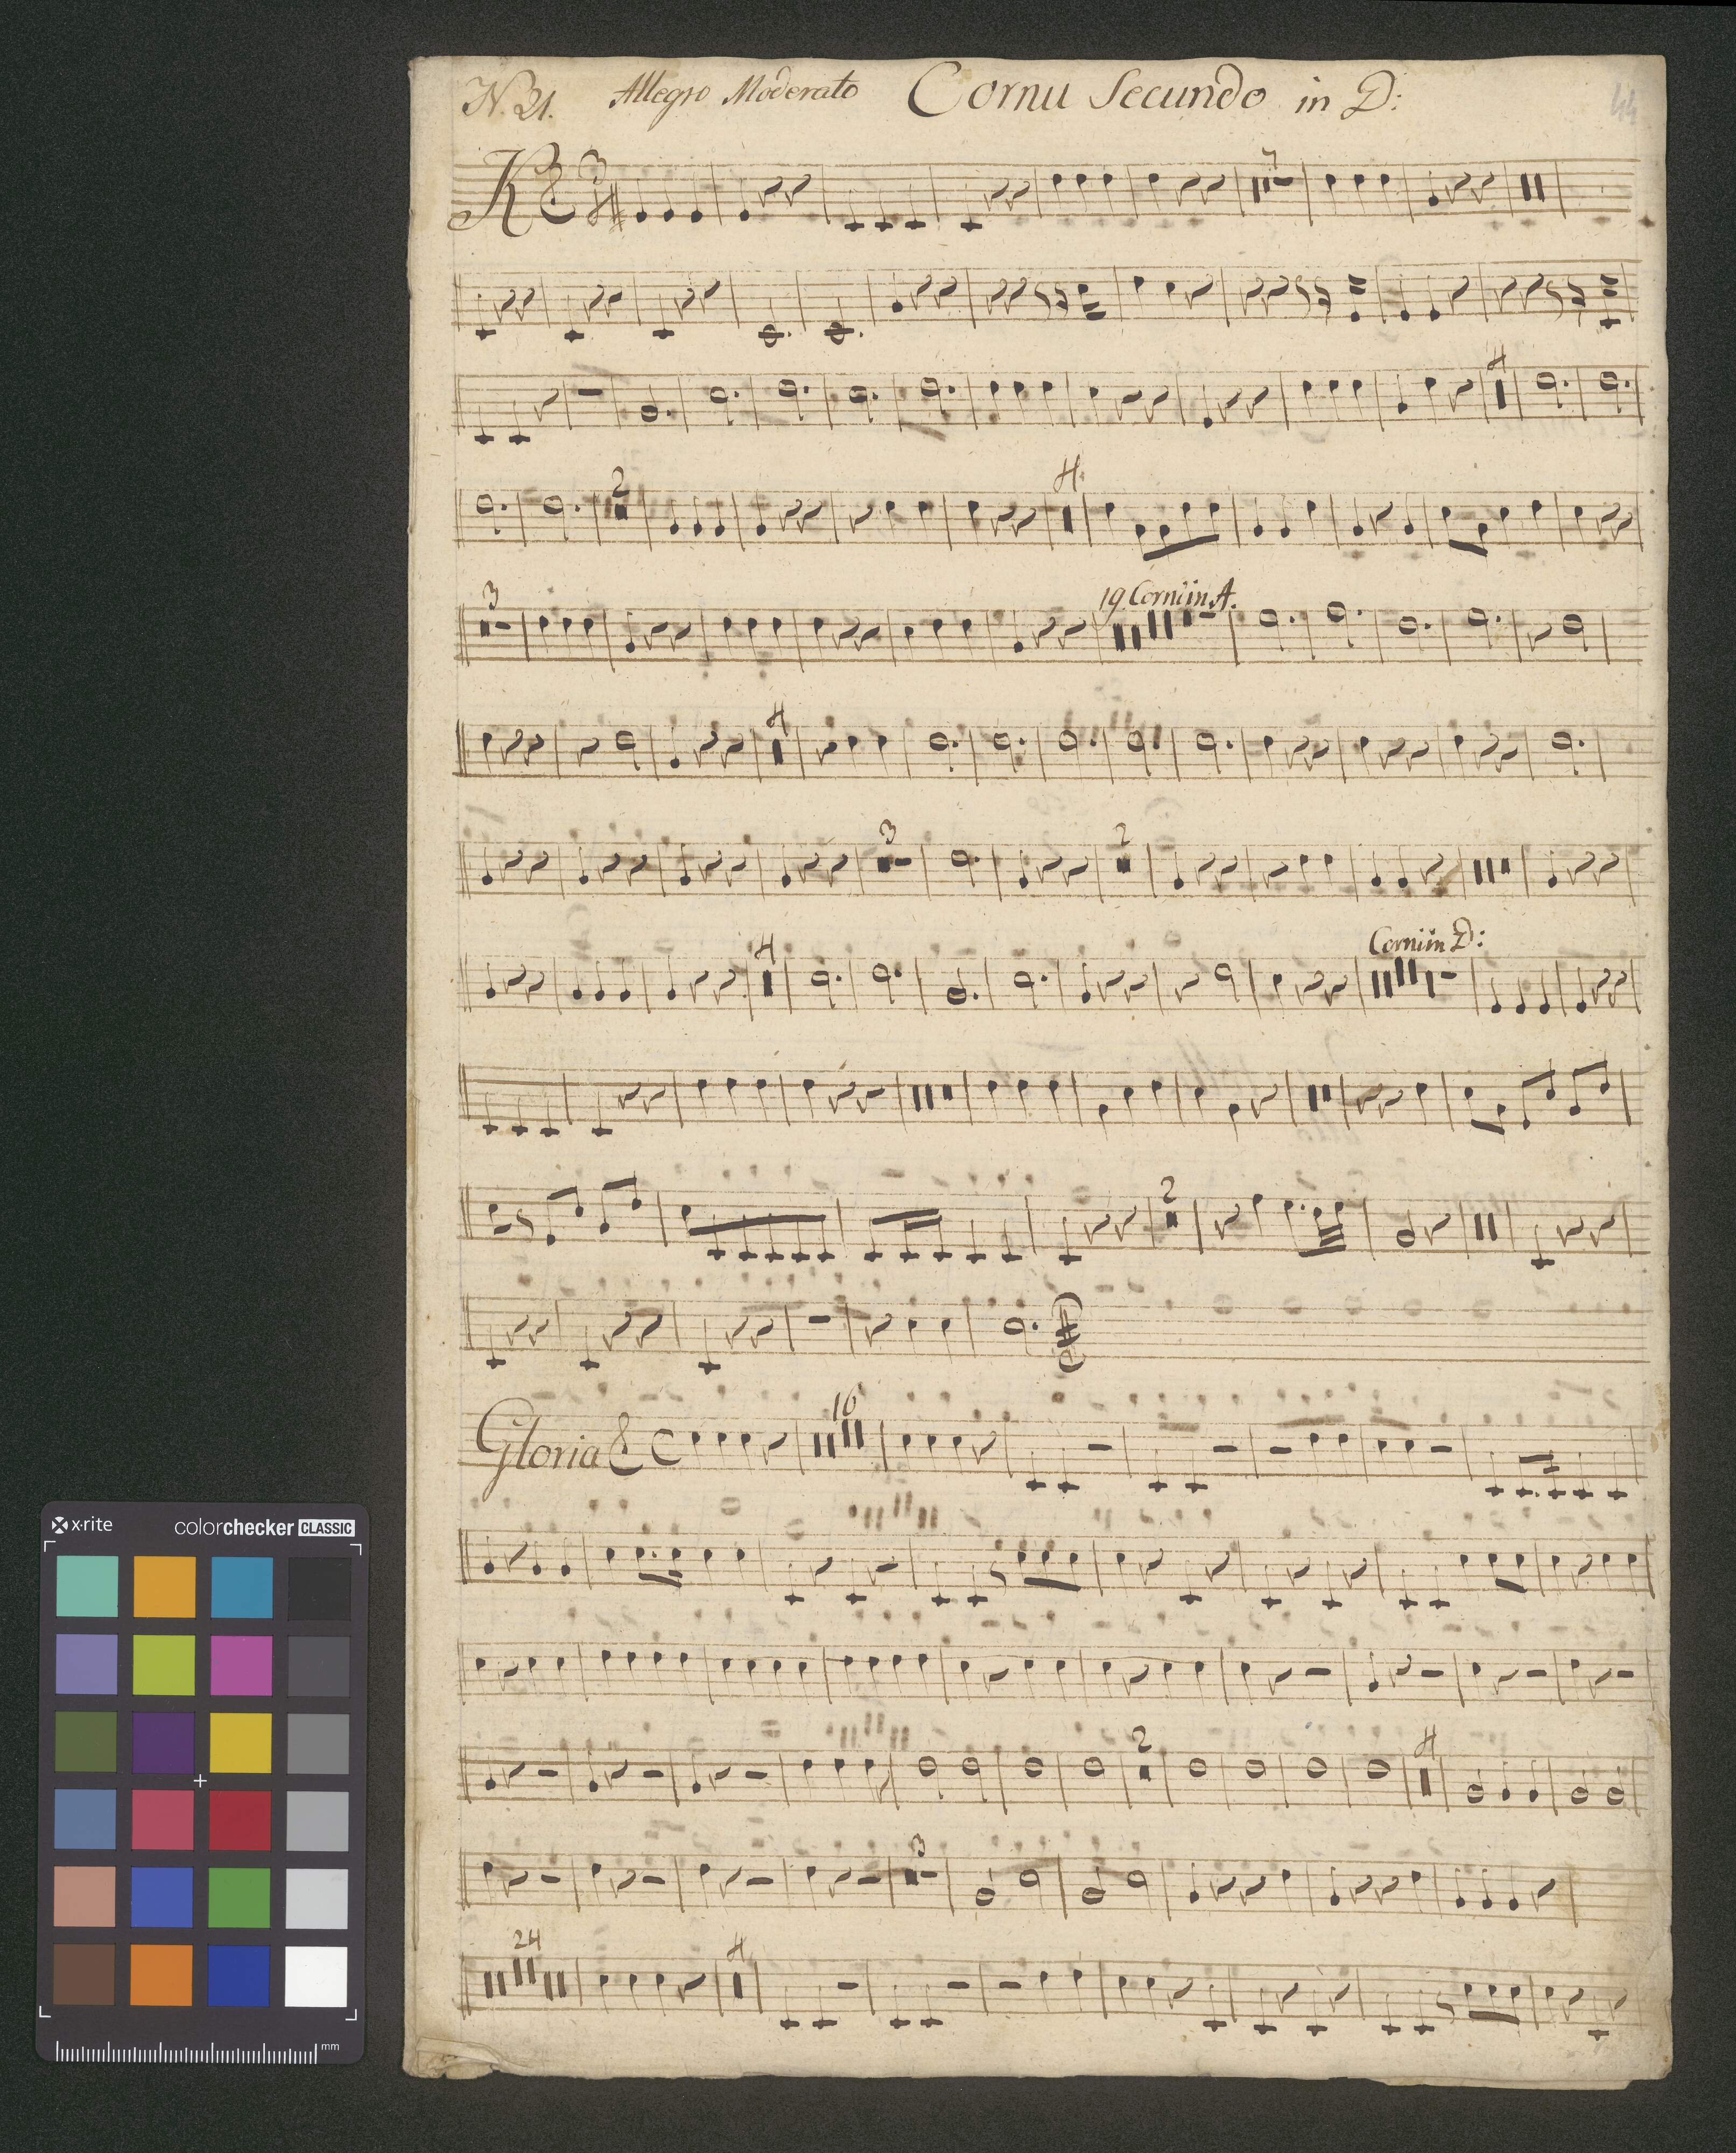 N. 31. Allegro Moderato Cornu Secundo in D: 44
K 3
7
H
2 H
3 19 Corni in A.
H
3 2
H Corni in D:
2
Gloria C 16
2 H
3
24 H
x·rite colorchecker CLASSIC
mm